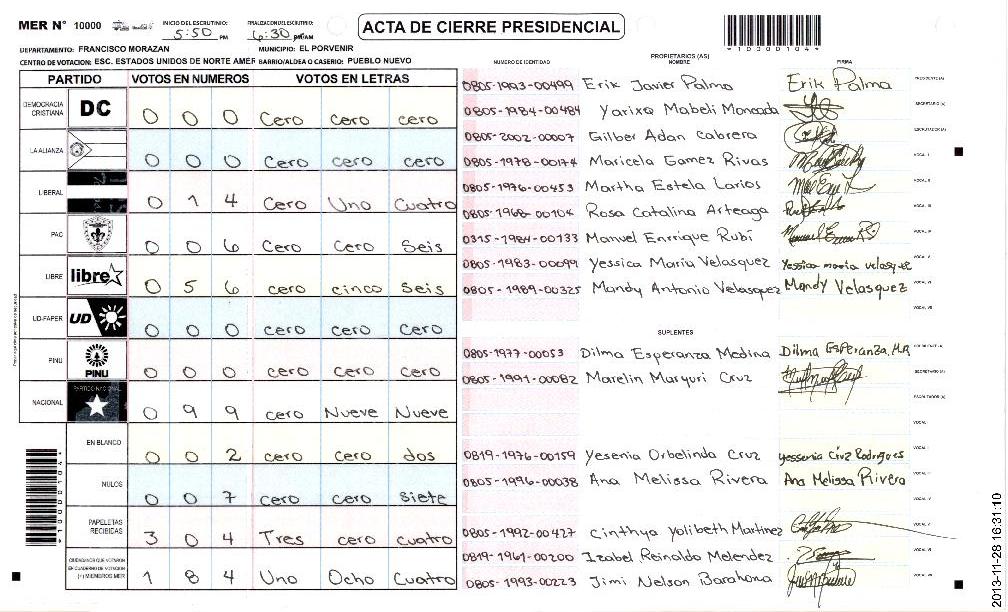 MER N° 10000 INICIO DEL ESCRUTINIO: 5:50 PM FINALIZACION DEL ESCRUTINIO: 6:30 PM/AM ACTA DE CIERRE PRESIDENCIAL *10000104*
DEPARTAMENTO: FRANCISCO MORAZAN MUNICIPIO: EL PORVENIR
CENTRO DE VOTACION: ESC. ESTADOS UNIDOS DE NORTE AMER BARRIO/ALDEA O CASERIO: PUEBLO NUEVO
PARTIDO VOTOS EN NUMEROS VOTOS EN LETRAS
DEMOCRACIA CRISTIANA DC 0 0 0 Cero cero cero
LA ALIANZA 0 0 0 Cero cero cero
LIBERAL 0 1 4 Cero Uno Cuatro
PAC 0 0 6 Cero Cero Seis
LIBRE libre 0 5 6 cero cinco Seis
UD-FAPER UD 0 0 0 cero Cero Cero
PINU PINU 0 0 0 cero cero cero
NACIONAL PARTIDO NACIONAL 0 9 9 cero Nueve Nueve
EN BLANCO 0 0 2 cero cero dos
NULOS 0 0 7 cero cero siete
PAPELETAS RECIBIDAS 3 0 4 Tres cero cuatro
CIUDADANOS QUE VOTARON EN CUADERNO DE VOTACION (+) MIEMBROS MER 1 8 4 Uno Ocho Cuatro
*10000104*
PROPIETARIOS (AS)
NUMERO DE IDENTIDAD NOMBRE FIRMA
0805-1993-00499 Erik Javier Palma Erik Palma PRESIDENTE (A)
0805-1984-00484 Yarixa Mabeli Moncada SECRETARIO (A)
0805-2002-00007 Gilber Adan Cabrera ESCRUTADOR (A)
0805-1978-00174 Maricela Gamez Rivas VOCAL I
0805-1976-00453 Martha Estela Larios VOCAL II
0805-1968-00104 Rosa Catalina Arteaga VOCAL III
0315-1984-00133 Manuel Enrrique Rubi VOCAL IV
0805-1983-00099 Yessica Maria Velasquez Yessica maria velasquez VOCAL V
0805-1989-00325 Mandy Antonio Velasquez Mandy Velasquez VOCAL VI
VOCAL VII
SUPLENTES
0805-1977-00053 Dilma Esperanza Medina Dilma Esperanza.M.R PRESIDENTE (A)
0805-1991-00082 Marelin Maryuri Cruz SECRETARIO (A)
ESCRUTADOR (A)
VOCAL I
0819-1976-00159 Yesenia Orbelinda Cruz yessenia Cruz Rodrigues
0805-1996-00038 Ana Melissa Rivera Ana Melissa Rivera
VOCAL IV
0805-1992-00427 Cinthya Yolibeth Martinez VOCAL V
0819-1961-00200 Izabel Reinaldo Melendez VOCAL VI
0805-1993-00223 Jimi Nelson Barahona VOCAL VII
2013-11-28 16:31:10